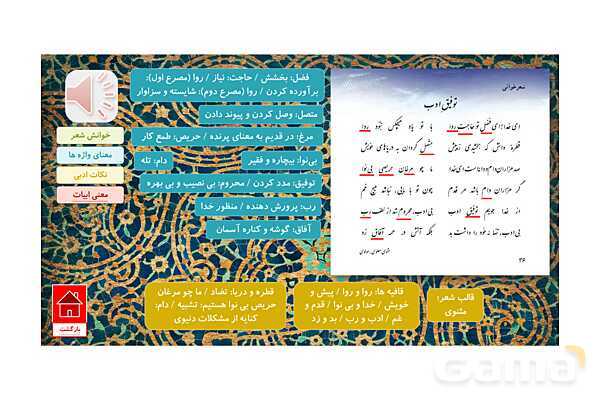 شعرخوانی
توفیق ادب
ای خدا! ای فضل تو حاجت روا
با تو یاد هیچکس نبود روا
قطرهٔ دانش که بخشیدی ز پیش
متصل گردان به دریاهای خویش
صد هزاران دام و دانه است ای خدا
ما چو مرغان حریصی بی نوا
گر هزاران دام باشد هر قدم
چون تو با مایی، نباشد هیچ غم
از خدا جوییم توفیق ادب
بی ادب، محروم شد از لطف رب
بی ادب، تنها نه خود را داشت بد
بلکه آتش در همه آفاق زد
مثنوی معنوی، مولوی
۳۶
فضل: بخشش / حاجت: نیاز / روا (مصرع اول):
برآورده کردن / روا (مصرع دوم): شایسته و سزاوار
متصل: وصل کردن و پیوند دادن
مرغ: در قدیم به معنای پرنده / حریص: طمع کار
بی‌نوا: بیچاره و فقیر
دام: تله
توفیق: مدد کردن / محروم: بی نصیب و بی بهره
رب: پرورش دهنده / منظور خدا
آفاق: گوشه و کناره آسمان
خوانش شعر
معنای واژه ها
نکات ادبی
معنی ابیات
قالب شعر:
مثنوی
قافیه ها: روا و روا / پیش و
خویش / خدا و بی نوا / قدم و
غم / ادب و رب / بد و زد
قطره و دریا: تضاد / ما چو مرغان
حریص بی نوا هستیم: تشبیه / دام:
کنایه از مشکلات دنیوی
بازگشت
Gama